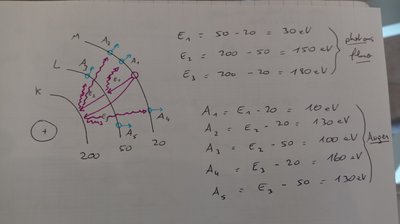 M
L
K
A3
A2
A1
E1
E2
E3
A5
A4
+
200
50
20
E1 = 50 - 20 = 30 eV
E2 = 200 - 50 = 150 eV
E3 = 200 - 20 = 180 eV
photons
fluo
A1 = E1 - 20 = 10 eV
A2 = E2 - 20 = 130 eV
A3 = E2 - 50 = 100 eV
A4 = E3 - 20 = 160 eV
A5 = E3 - 50 = 130 eV
Auger